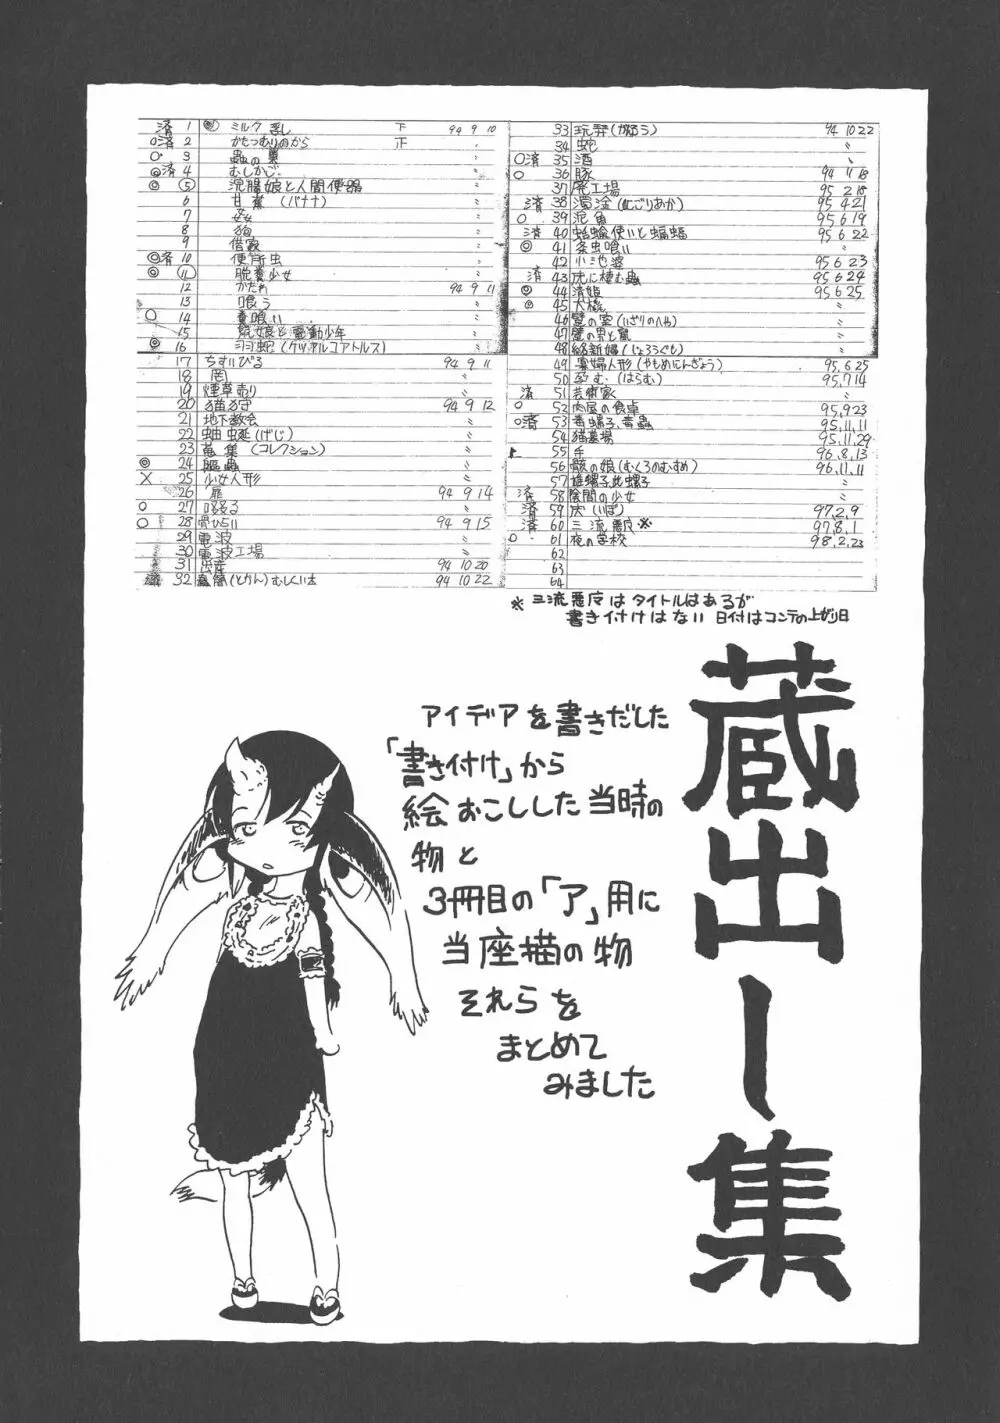 済 1 ミルク 下 94 9 10
○済 2 かたつむりのから 正 〃
○ 3 蟲の 〃
◎済 4 むしかご 〃
◎ 5 浣腸娘と人間便器 〃
6 甘蕉 (バナナ) 〃
7 〃
8 狗 〃
9 借家 〃
◎済 10 便所虫 〃
◎ 11 脱糞少女 〃
12 かたわ 94 9 11
13 喰う 〃
○ 14 糞喰い 〃
15 娘と電動少年 〃
◎ 16 羽蛇 (ケツァルコアトルス) 〃
17 ちすいびる 94 9 11
18 〃
19 煙草売り 〃
20 猫狩 94 9 12
21 地下教会 〃
22 蚰蜒 (げじ) 〃
23 蒐集 (コレクション) 〃
◎ 24 驅蟲 〃
× 25 少女人形 〃
26 扉 94 9 14
○ 27 〃
○ 28 骨ひろい 94 9 15
29 電波 〃
30 電波工場 〃
31 出産 94 10 20
32 (とかん) むしくいた 94 10 22
33 玩弄 (がろう) 94 10 22
34 蛇 〃
○済 35 酒 〃
○ 36 豚 94 11 18
37 廃工場 95 2 18
済 38 濁淦 (にごりあか) 95 4 21
○ 39 泥魚 95 6 19
済 40 蛞蝓使いと蝙蝠 95 6 22
◎ 41 条虫喰い 〃
42 小池婆 95 6 23
済 43 虎に棲む蟲 95 6 24
◎ 44 清姫 95 6 25
◎ 45 大機 〃
46 躄の室 (いざりのへや) 〃
47 壁の男と鼠 〃
48 絡新婦 (じょろうぐも) 〃
49 寡婦人形 (やもめにんぎょう) 95.6 25
50 孕む (はらむ) 95.7 14
済 51 芸術家
○ 52 肉屋の食卓 95.9 23
○済 53 95.11.11
54 猫墓場 95.11.29
55 手 96.8.13
56 骸の娘 (むくろのむすめ) 96.11.11
57 〃
済 58 陰間の少女 〃
済 59 疣 (いぼ) 97.2.9
済 60 三流悪皮※ 97.8.1
○ 61 夜の学校 98.2.23
62
63
64
※ 三流悪皮はタイトルはあるが
書き付けはない 日付はコンテの上がり日
蔵出し集
アイデアを書きだした
「書き付け」から
絵おこしした当時の
物と
3冊目の「ア」用に
当座描の物
それらを
まとめて
みました